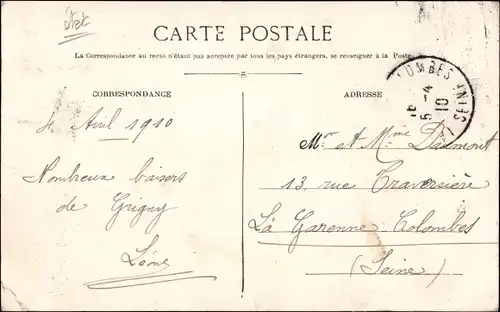 CARTE POSTALE
La Correspondance au recto n'étant pas acceptée par tous les pays étrangers, se renseigner à la Poste
CORRESPONDANCE
ADRESSE
4 Avril 1910
Nombreux baisers
de Grigny
Mr et Mme Daumont
13, rue Traversière
La Garenne Colombes
(Seine)
5-4
10